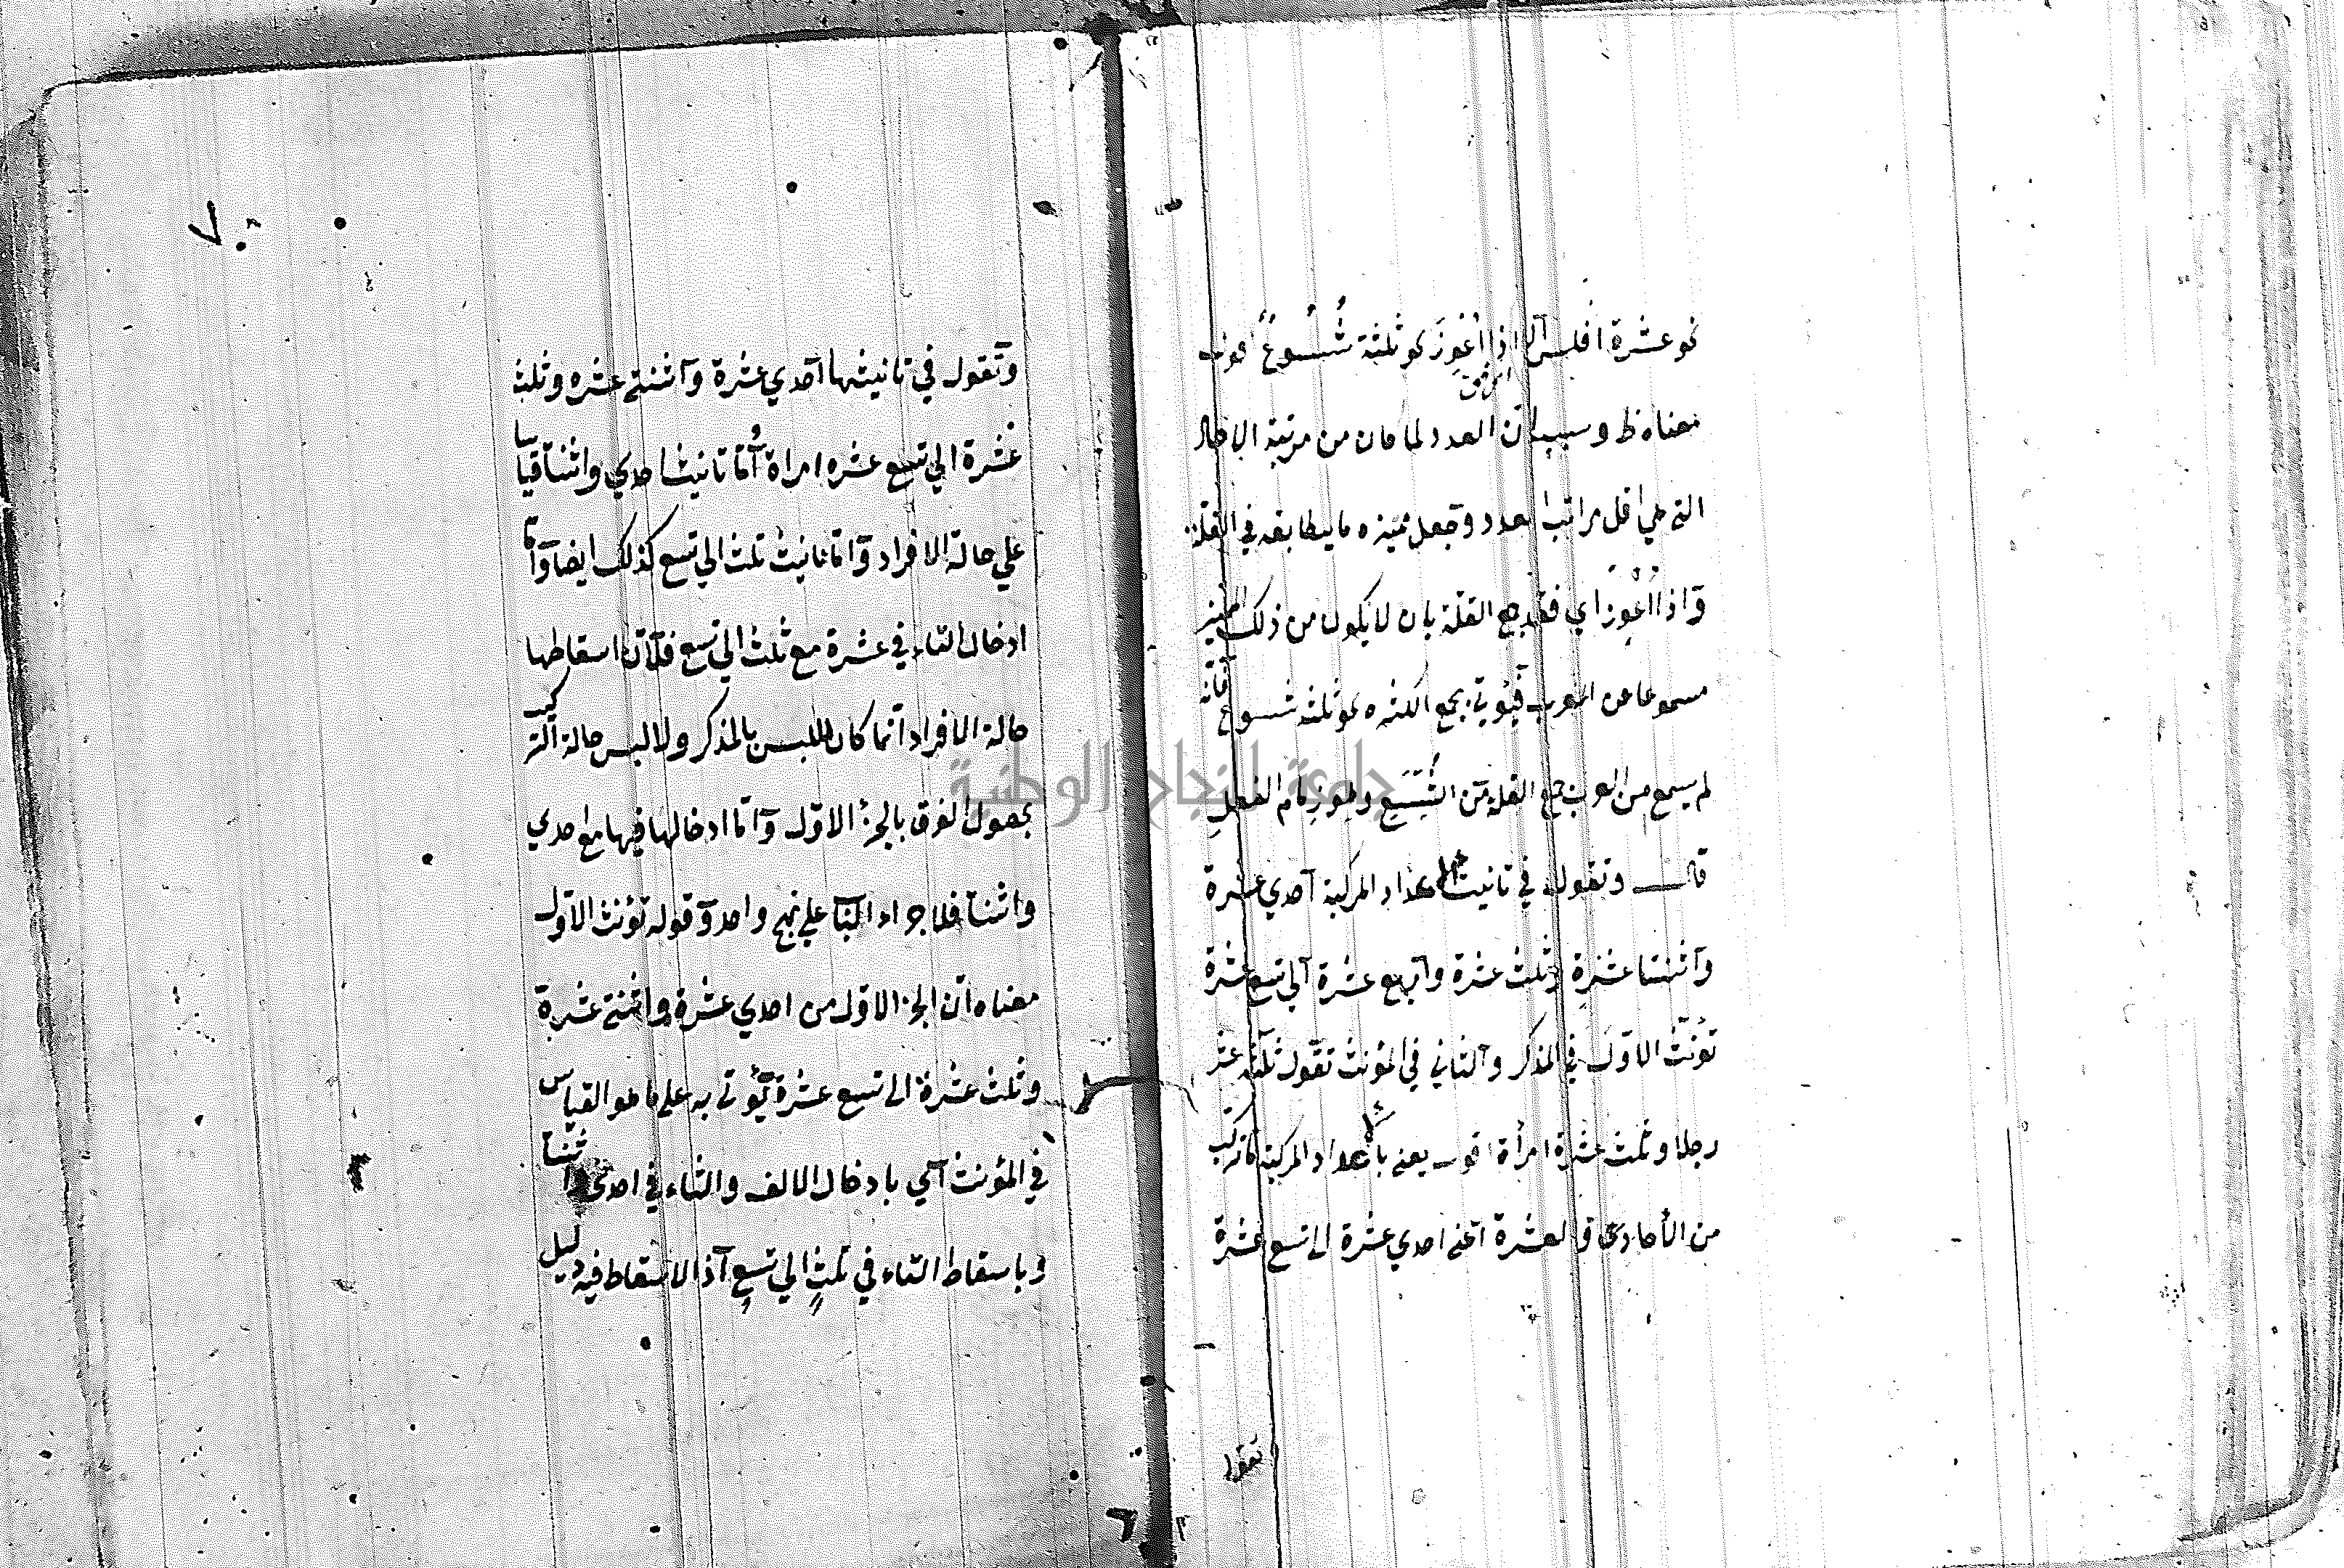 نحو عشرة افلس الا اذا اعوز نحو ثلثة شسوع اقول
معناه ظ وسببه ان العدد لما كان من مرتبة الاحاد
التي هي اقل مراتب العدد وجعل مميزه ما يطابقه في القلة
واذا اعوز اي فقد جمع القلة بان لا يكون من ذلك المميز
مسموعا من العرب فيؤتي بجمع الكثره نحو ثلثة شسوع فانه
لم يسمع من العرب جمع القلة من الشسع
قال وتقول في تانيث الاعداد المركبة احدي عشرة
واثنتا عشرة وثلث عشرة واربع عشرة الي تسع عشرة
تؤنث الاول في المذكر والثاني في المؤنث تقول ثلثة عشر
رجلا وثلث عشرة امرأة اقول يعني بالاعداد المركبة ما تركب
من الأحاد والعشرة اعني احدي عشرة الى تسع عشرة
تقول
٧٠
وتقول في تانيثها احدي عشرة واثنتي عشره وثلث
عشرة الي تسع عشره امراة اما تانيث احدي واثنتا قياسا
علي حالة الافراد واما تانيث ثلث الي تسع كذلك ايضا واما
ادخال التاء في عشرة مع ثلث الي تسع فلأن اسقاطها
حالة الافراد انما كان للبس بالمذكر ولا لبس حالة التركيب
بحصول الفرق بالجزء الاول واما ادخالها فيها مع احدي
واثنتا فلاجراء الباب علي نهج واحد وقوله تؤنث الاول
معناه ان الجزء الاول من احدي عشرة واثنتي عشرة
وثلث عشرة الى تسع عشرة يؤتى به على ما هو القياس
في المؤنث اي بادخال الالف والتاء في احدى واثنتا
وباسقاط التاء في ثلث الي تسع اذ الاسقاط فيه دليل
جامعة النجاح الوطنية